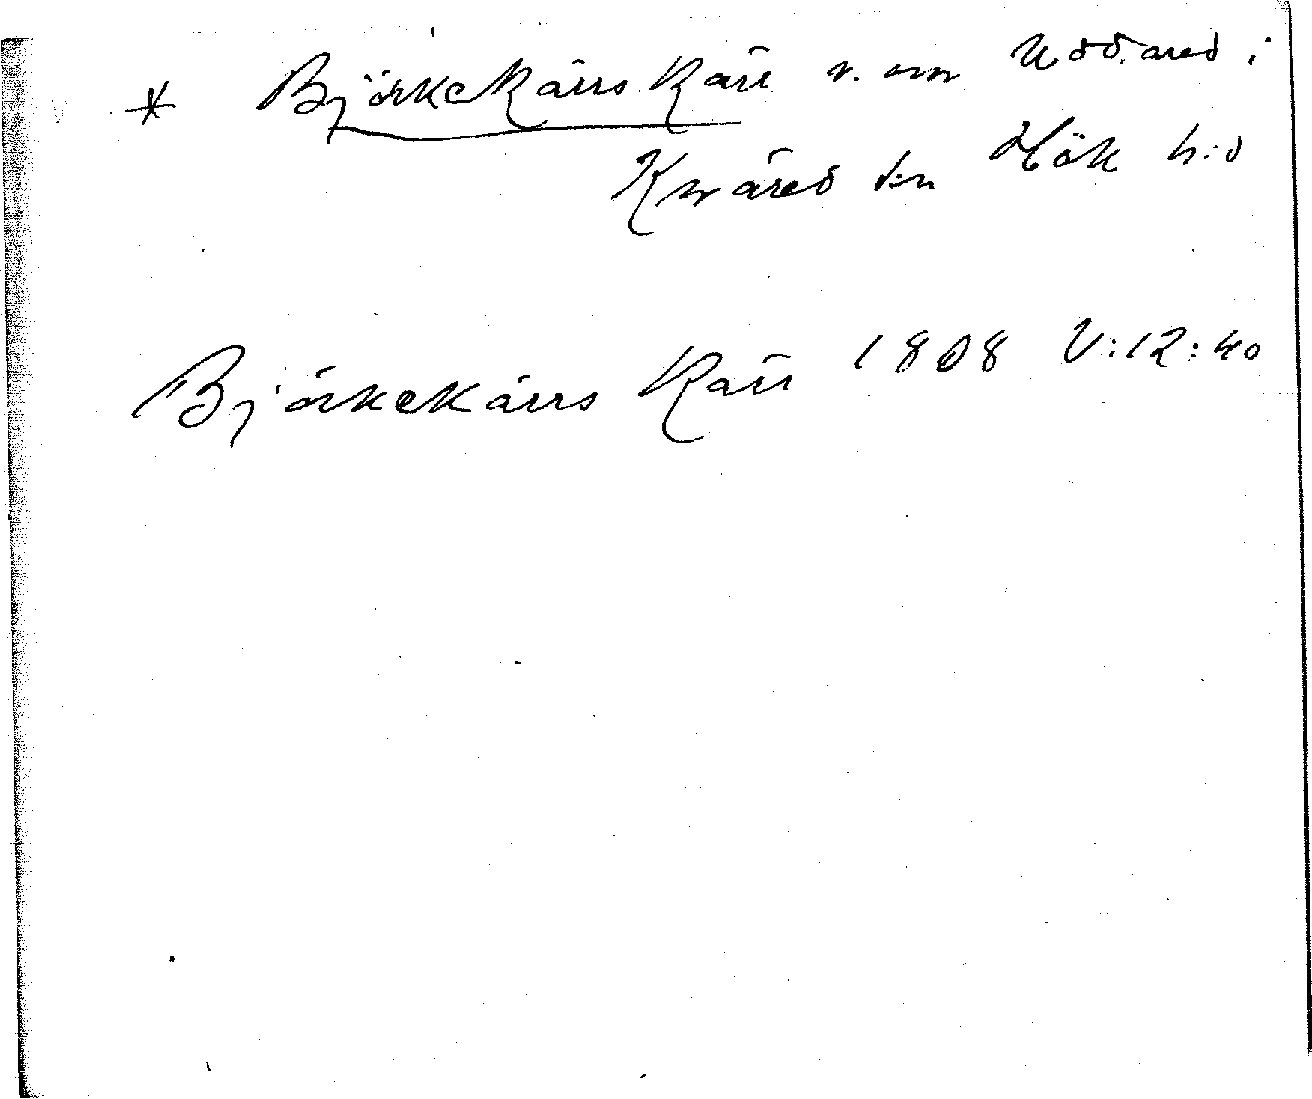 * BjörkeKärrs Kärr n. om Uddared i
Knäred s:n Hök h:d
Björkekärrs Kärr 1808 V:12:40